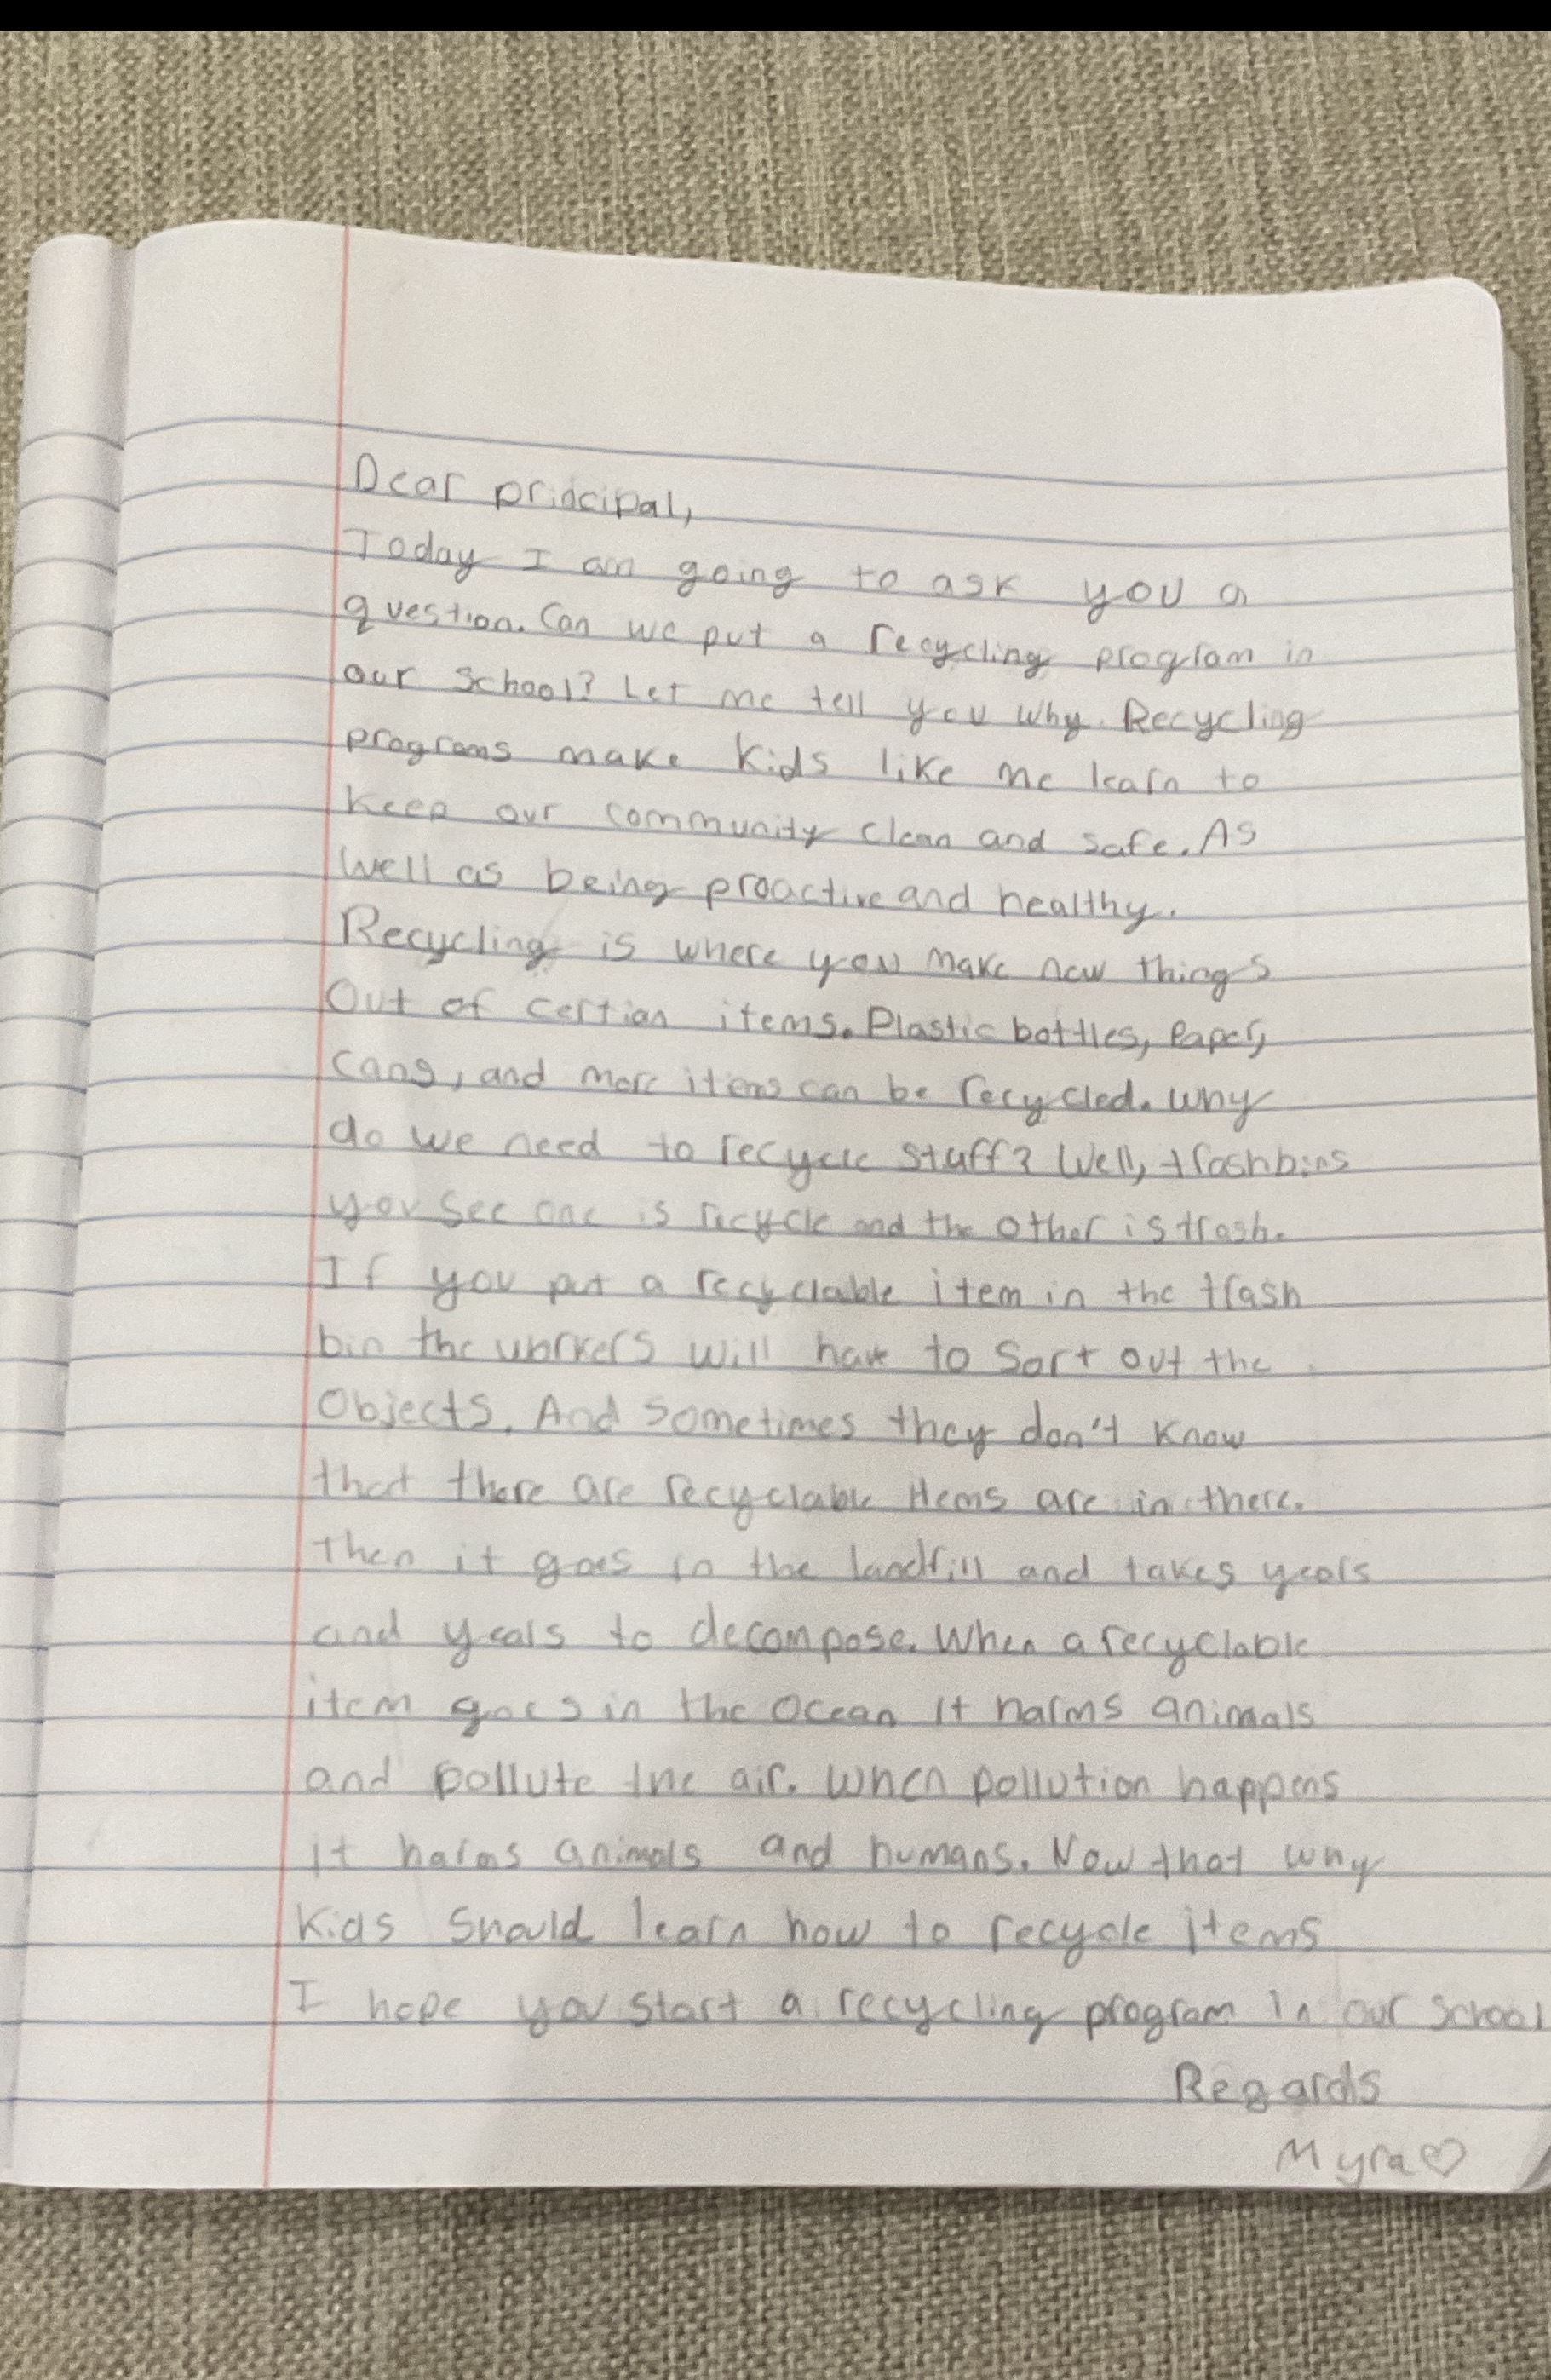 Dear principal,
Today I am going to ask you a
question. Can we put a recycling program in
our school? Let me tell you why. Recycling
programs make kids like me learn to
keep our community clean and safe. As
well as being proactive and healthy.
Recycling is where you make new things
Out of certian items. Plastic bottles, Paper,
cans, and more items can be recycled. Why
do we need to recycle stuff? Well, trashbins
you see one is recycle and the other is trash.
If you put a recyclable item in the trash
bin the workers will have to sort out the
Objects. And sometimes they don't know
that there are recyclable items are in there.
Then it goes in the landfill and takes years
and years to decompose. When a recyclable
item goes in the ocean it harms animals
and pollute the air. When pollution happens
it harms animals and humans. Now that why
kids should learn how to recycle items
I hope you start a recycling program in our school
Regards
Myra♡